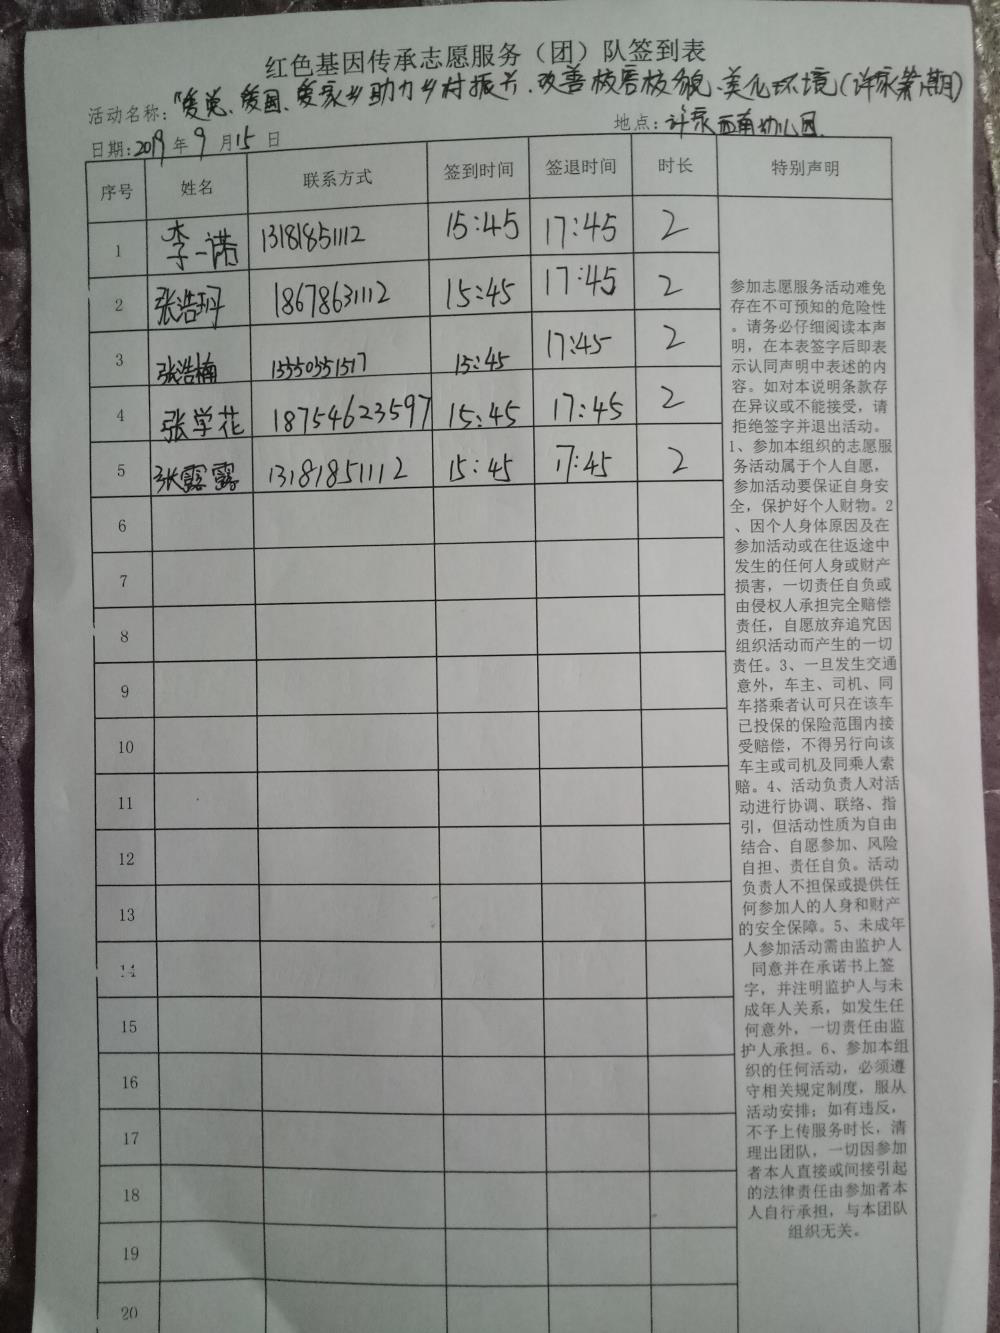 红色基因传承志愿服务（团）队签到表
活动名称：“爱党、爱国、爱家乡助力乡村振兴、改善校容校貌、美化环境（许家第 期）
地点：许家西南幼儿园
日期：2019年9月15日
序号 姓名 联系方式 签到时间 签退时间 时长 特别声明
1 李一诺 13181851112 15:45 17:45 2
2 张浩 18678631112 15:45 17:45 2
3 张浩楠 15:45 17:45 2
4 张学花 18754623597 15:45 17:45 2
5 张露露 13181851112 15:45 17:45 2
6
7
8
9
10
11
12
13
14
15
16
17
18
19
20
参加志愿服务活动难免
存在不可预知的危险性
。请务必仔细阅读本声
明，在本表签字后即表
示认同声明中表述的内
容。如对本说明条款存
在异议或不能接受，请
拒绝签字并退出活动。
1、参加本组织的志愿服
务活动属于个人自愿，
参加活动要保证自身安
全，保护好个人财物。2
、因个人身体原因及在
参加活动或在往返途中
发生的任何人身或财产
损害，一切责任自负或
由侵权人承担完全赔偿
责任，自愿放弃追究因
组织活动而产生的一切
责任。3、一旦发生交通
意外，车主、司机、同
车搭乘者认可只在该车
已投保的保险范围内接
受赔偿，不得另行向该
车主或司机及同乘人索
赔。4、活动负责人对活
动进行协调、联络、指
引，但活动性质为自由
结合、自愿参加、风险
自担、责任自负。活动
负责人不担保或提供任
何参加人的人身和财产
的安全保障。5、未成年
人参加活动需由监护人
同意并在承诺书上签
字，并注明监护人与未
成年人关系，如发生任
何意外，一切责任由监
护人承担。6、参加本组
织的任何活动，必须遵
守相关规定制度，服从
活动安排；如有违反，
不予上传服务时长，清
理出团队，一切因参加
者本人直接或间接引起
的法律责任由参加者本
人自行承担，与本团队
组织无关。